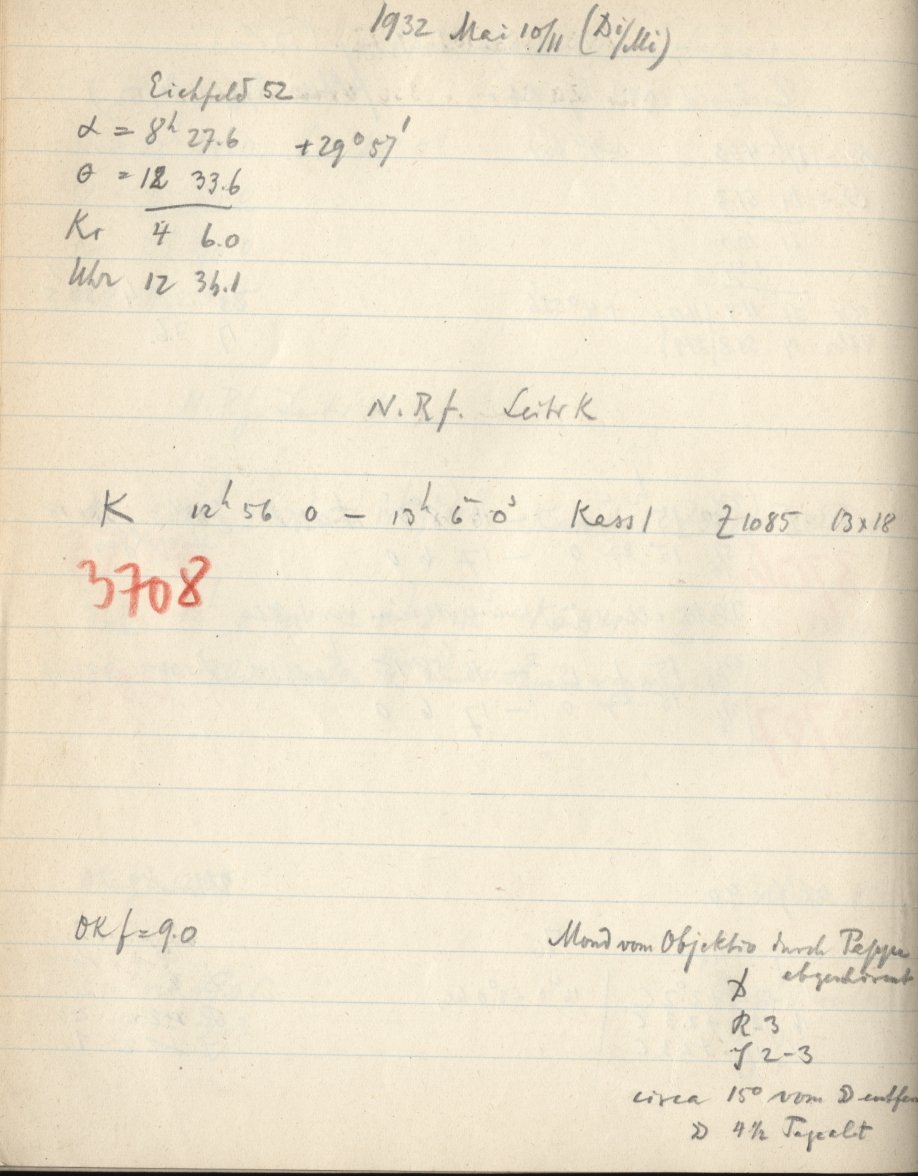 1932 Mai 10/11 (Di/Mi)
Eichfeld 52
α = 8h 27.6 +29° 57'
θ = 12 33.6
Kr 4 6.0
Uhr 12 34.1
N. Rf. Leitr K
K 12h 56 0 – 13h 6m 0s Kass 1 Z 1085 13x18
3708
OK f = 9.0
Mond vom Objektiv durch Pappe
abgeschirmt
R 3
2-3
circa 15° vom ☽ entfer
☽ 4½ Tage alt